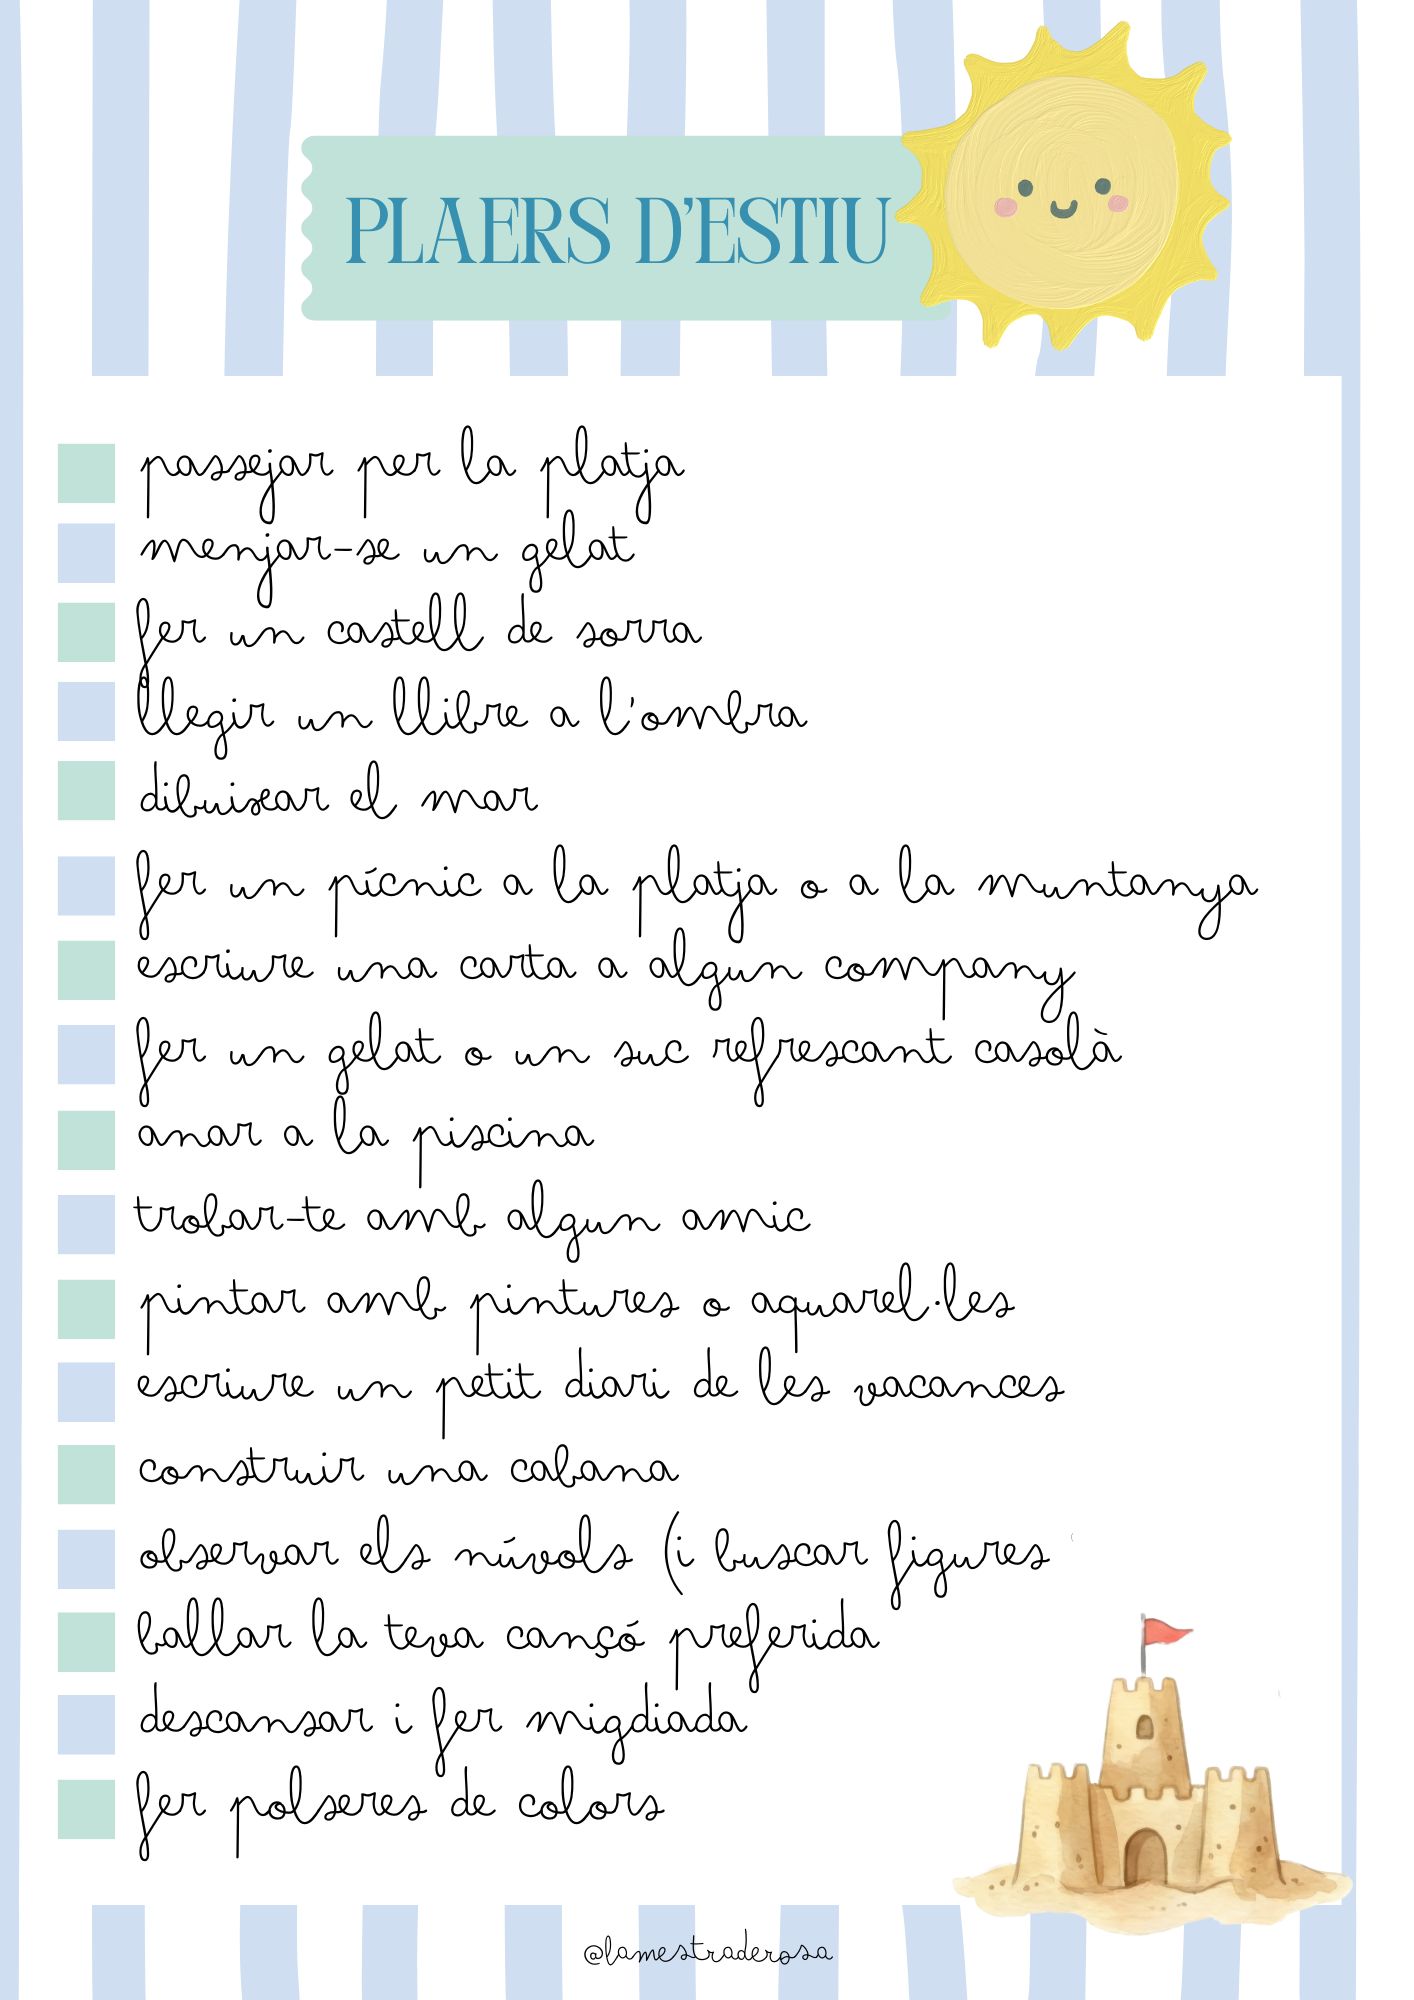 PLAERS D'ESTIU
passejar per la platja
menjar-se un gelat
fer un castell de sorra
llegir un llibre a l'ombra
dibuixar el mar
fer un pícnic a la platja o a la muntanya
escriure una carta a algun company
fer un gelat o un suc refrescant casolà
anar a la piscina
trobar-te amb algun amic
pintar amb pintures o aquarel·les
escriure un petit diari de les vacances
construir una cabana
observar els núvols (i buscar figures
ballar la teva cançó preferida
descansar i fer migdiada
fer polseres de colors
@lamestraderosa